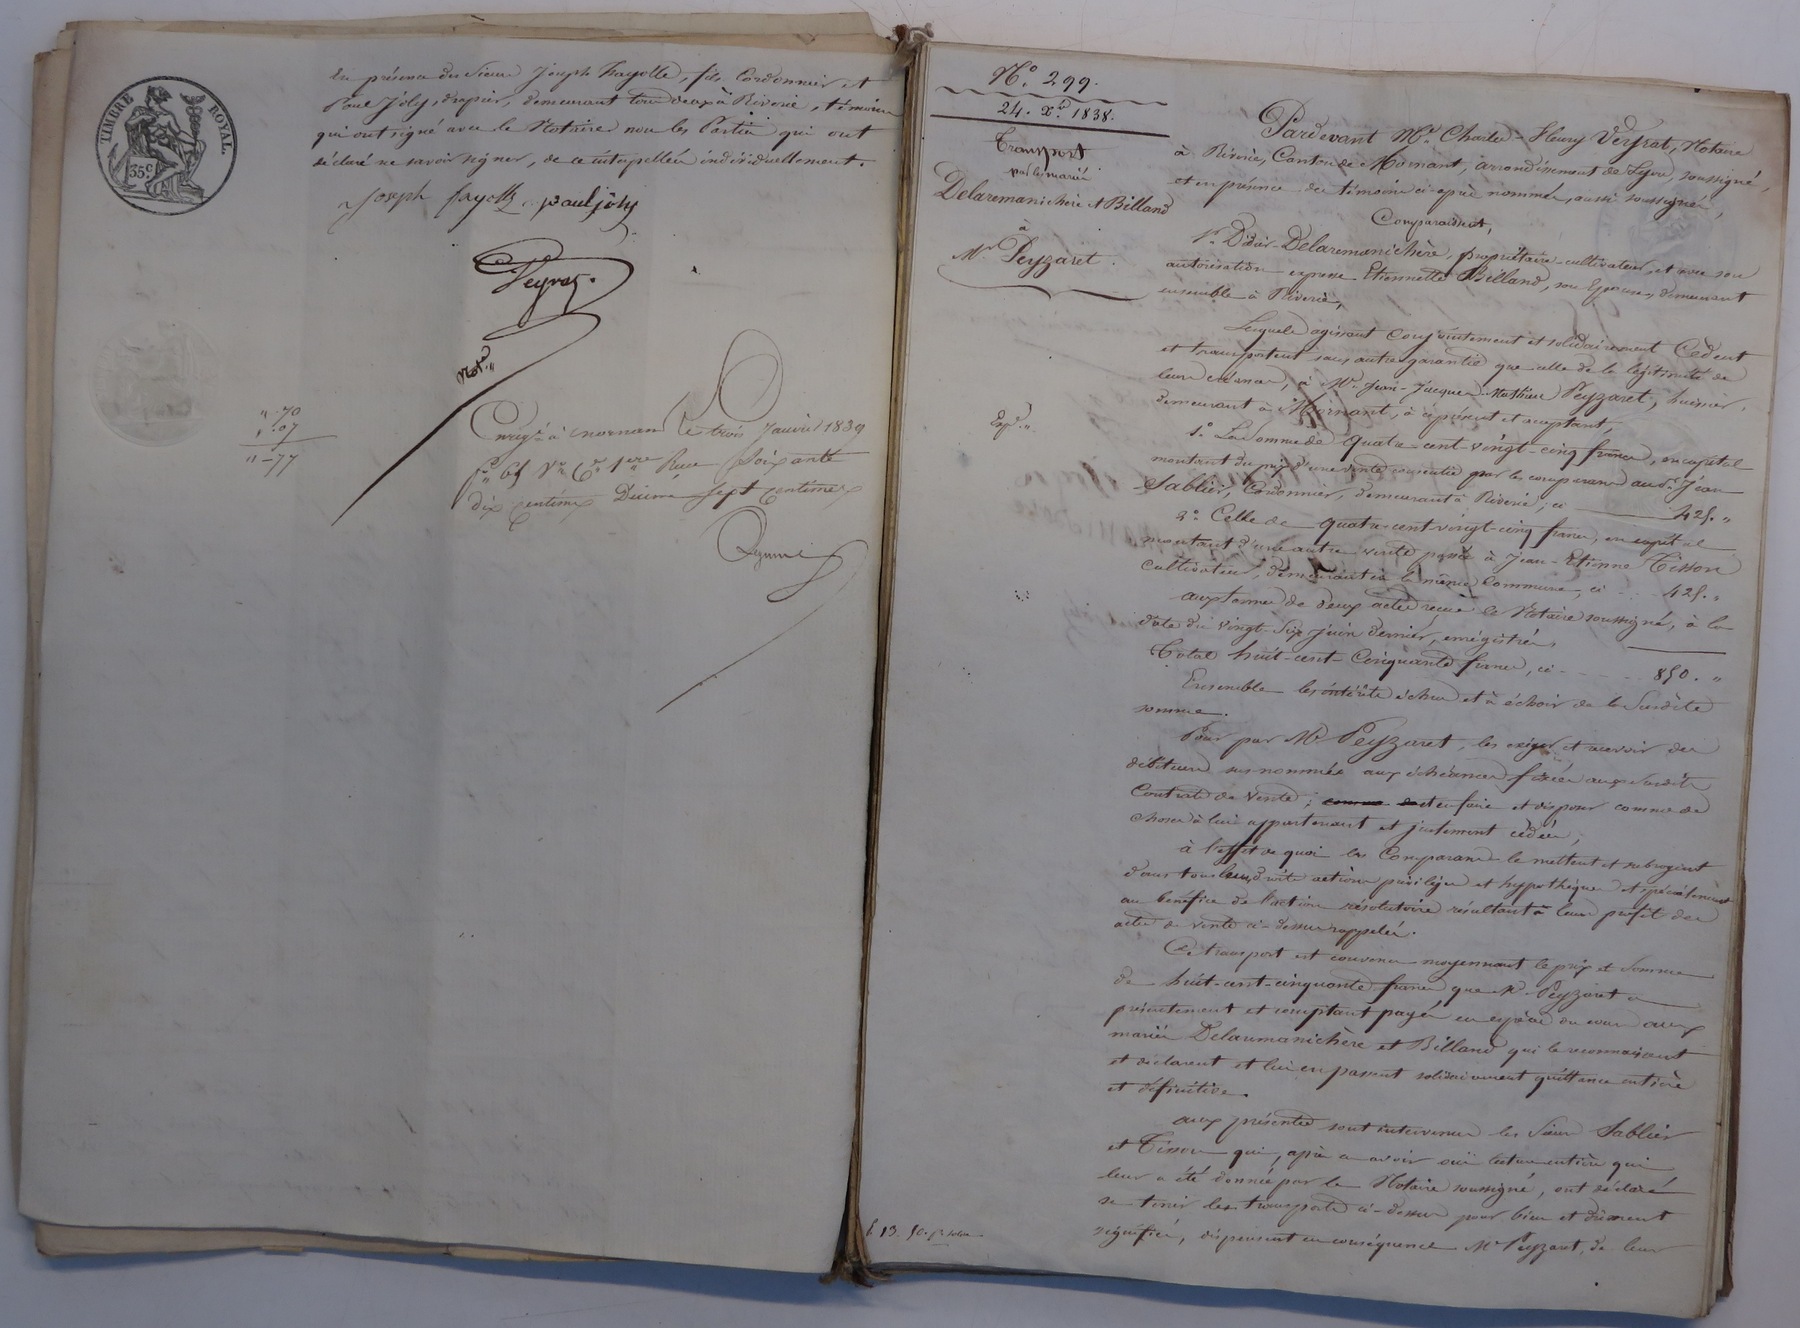 TIMBRE ROYAL.
35c
En présence des Sieurs Joseph Fayolle, fils, Cordonnier et
Paul Joly, drapier, demeurant tous deux à Riverie, témoins
qui ont signé avec le Notaire non les Parties qui ont
déclaré ne savoir signer, de ce interpellées individuellement.
Joseph fayolle paul joly
Veyrat.
Not.re
" 70
" 07
" - 77
Enreg.é à mornant le trois Janvier 1839
f.o 61 V.o C.e 1ere Recu Soixante
dix centimes Décime sept centimes
N.o 299.
24. X.bre 1838.
Transport
par les mariés
Delaremanichère et Billand
à
M.r Peyzaret.
Exp.on
Pardevant M.e Charles-Fleury Veyrat, Notaire
à Riverie, Canton de Mornant, arrondissement de Lyon, soussigné,
et en présence des témoins ci-après nommés, aussi soussignés,
Comparaissent,
S.r Didier Delaremanichère, propriétaire-cultivateur, et avec son
autorisation expresse Etiennette Billand, son Epouse, demeurant
ensemble à Riverie,
Lesquels agissant conjointement et solidairement Cèdent
et transportent sans autre garantie que celle de la légitimité de
leur créance, à M.r Jean-Jacques-Mathieu Peyzaret, huissier,
demeurant à Mornant, à ce présent et acceptant,
1.o La Somme de quatre-cent-vingt-cinq francs, en capital
montant du prix d'une vente consentie par les comparans au S.r Jean
Sablier, Cordonnier, demeurant à Riverie, ci 425. "
2.o Celle de quatre-cent-vingt-cinq francs, en capital
montant d'une autre vente passée à Jean-Etienne Tisson
Cultivateur, demeurant en la même Commune, ci 425. "
aux termes de deux actes reçus le Notaire soussigné, à la
date du vingt-six juin dernier, enregistrés,
Total huit-cent-Cinquante francs, ci 850. "
Ensemble les intérêts échus et à échoir de la Susdite
somme.
Pour par M.r Peyzaret, les exiger et recevoir des
débiteurs sus-nommés aux échéances fixées aux Susdits
Contrats de Vente; et en faire et disposer comme de
choses à lui appartenant et justement cédées,
à l'effet de quoi les Comparans le mettent et subrogent
dans tous leurs droits actions privilèges et hypothèques et spécialement
au bénéfice de l'action résolutoire résultant à leur profit des
actes de vente ci-dessus rappelés.
Ce transport est convenu moyennant le prix et Somme
de huit-cent-cinquante francs que M.r Peyzaret a
présentement et comptant payés en espèces du cours aux
mariés Delaremanichère et Billand qui le reconnaissent
et déclarent et lui en passent solidairement quittance entière
et définitive.
aux présentes sont intervenus les Sieurs Sablier
et Tisson qui, après en avoir ouï lecture entière qui
leur a été donnée par le Notaire soussigné, ont déclaré
se tenir les transports ci-dessus pour bien et dûment
signifiés, dispensent en conséquence M.r Peyzaret, de leur